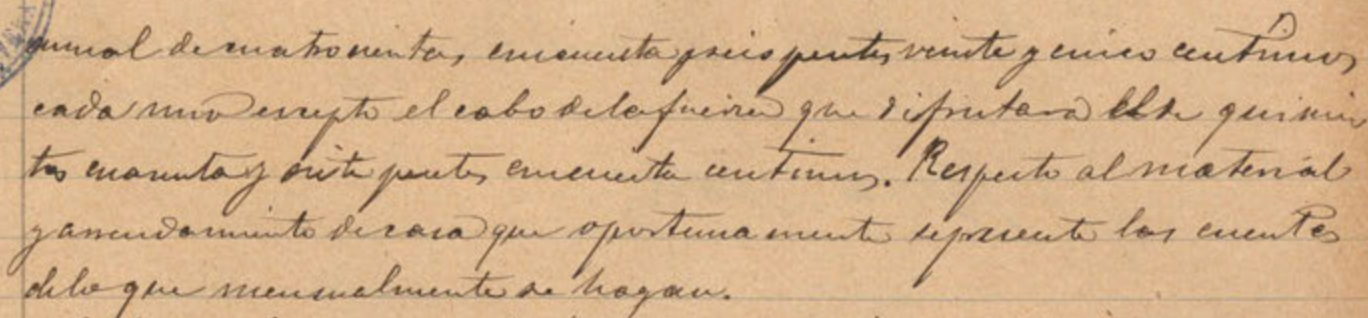 anual de cuatrocientas, cincuenta y seis pesetas veinte y cinco centimos
cada uno escepto el cabo de la fuerza que disfrutara el de quinien
tas cuarenta y siete pesetas cincuenta centimos. Respecto al material
y arrendamiento de casa que oportunamente se presente las cuentas
de lo que mensualmente se hagan.